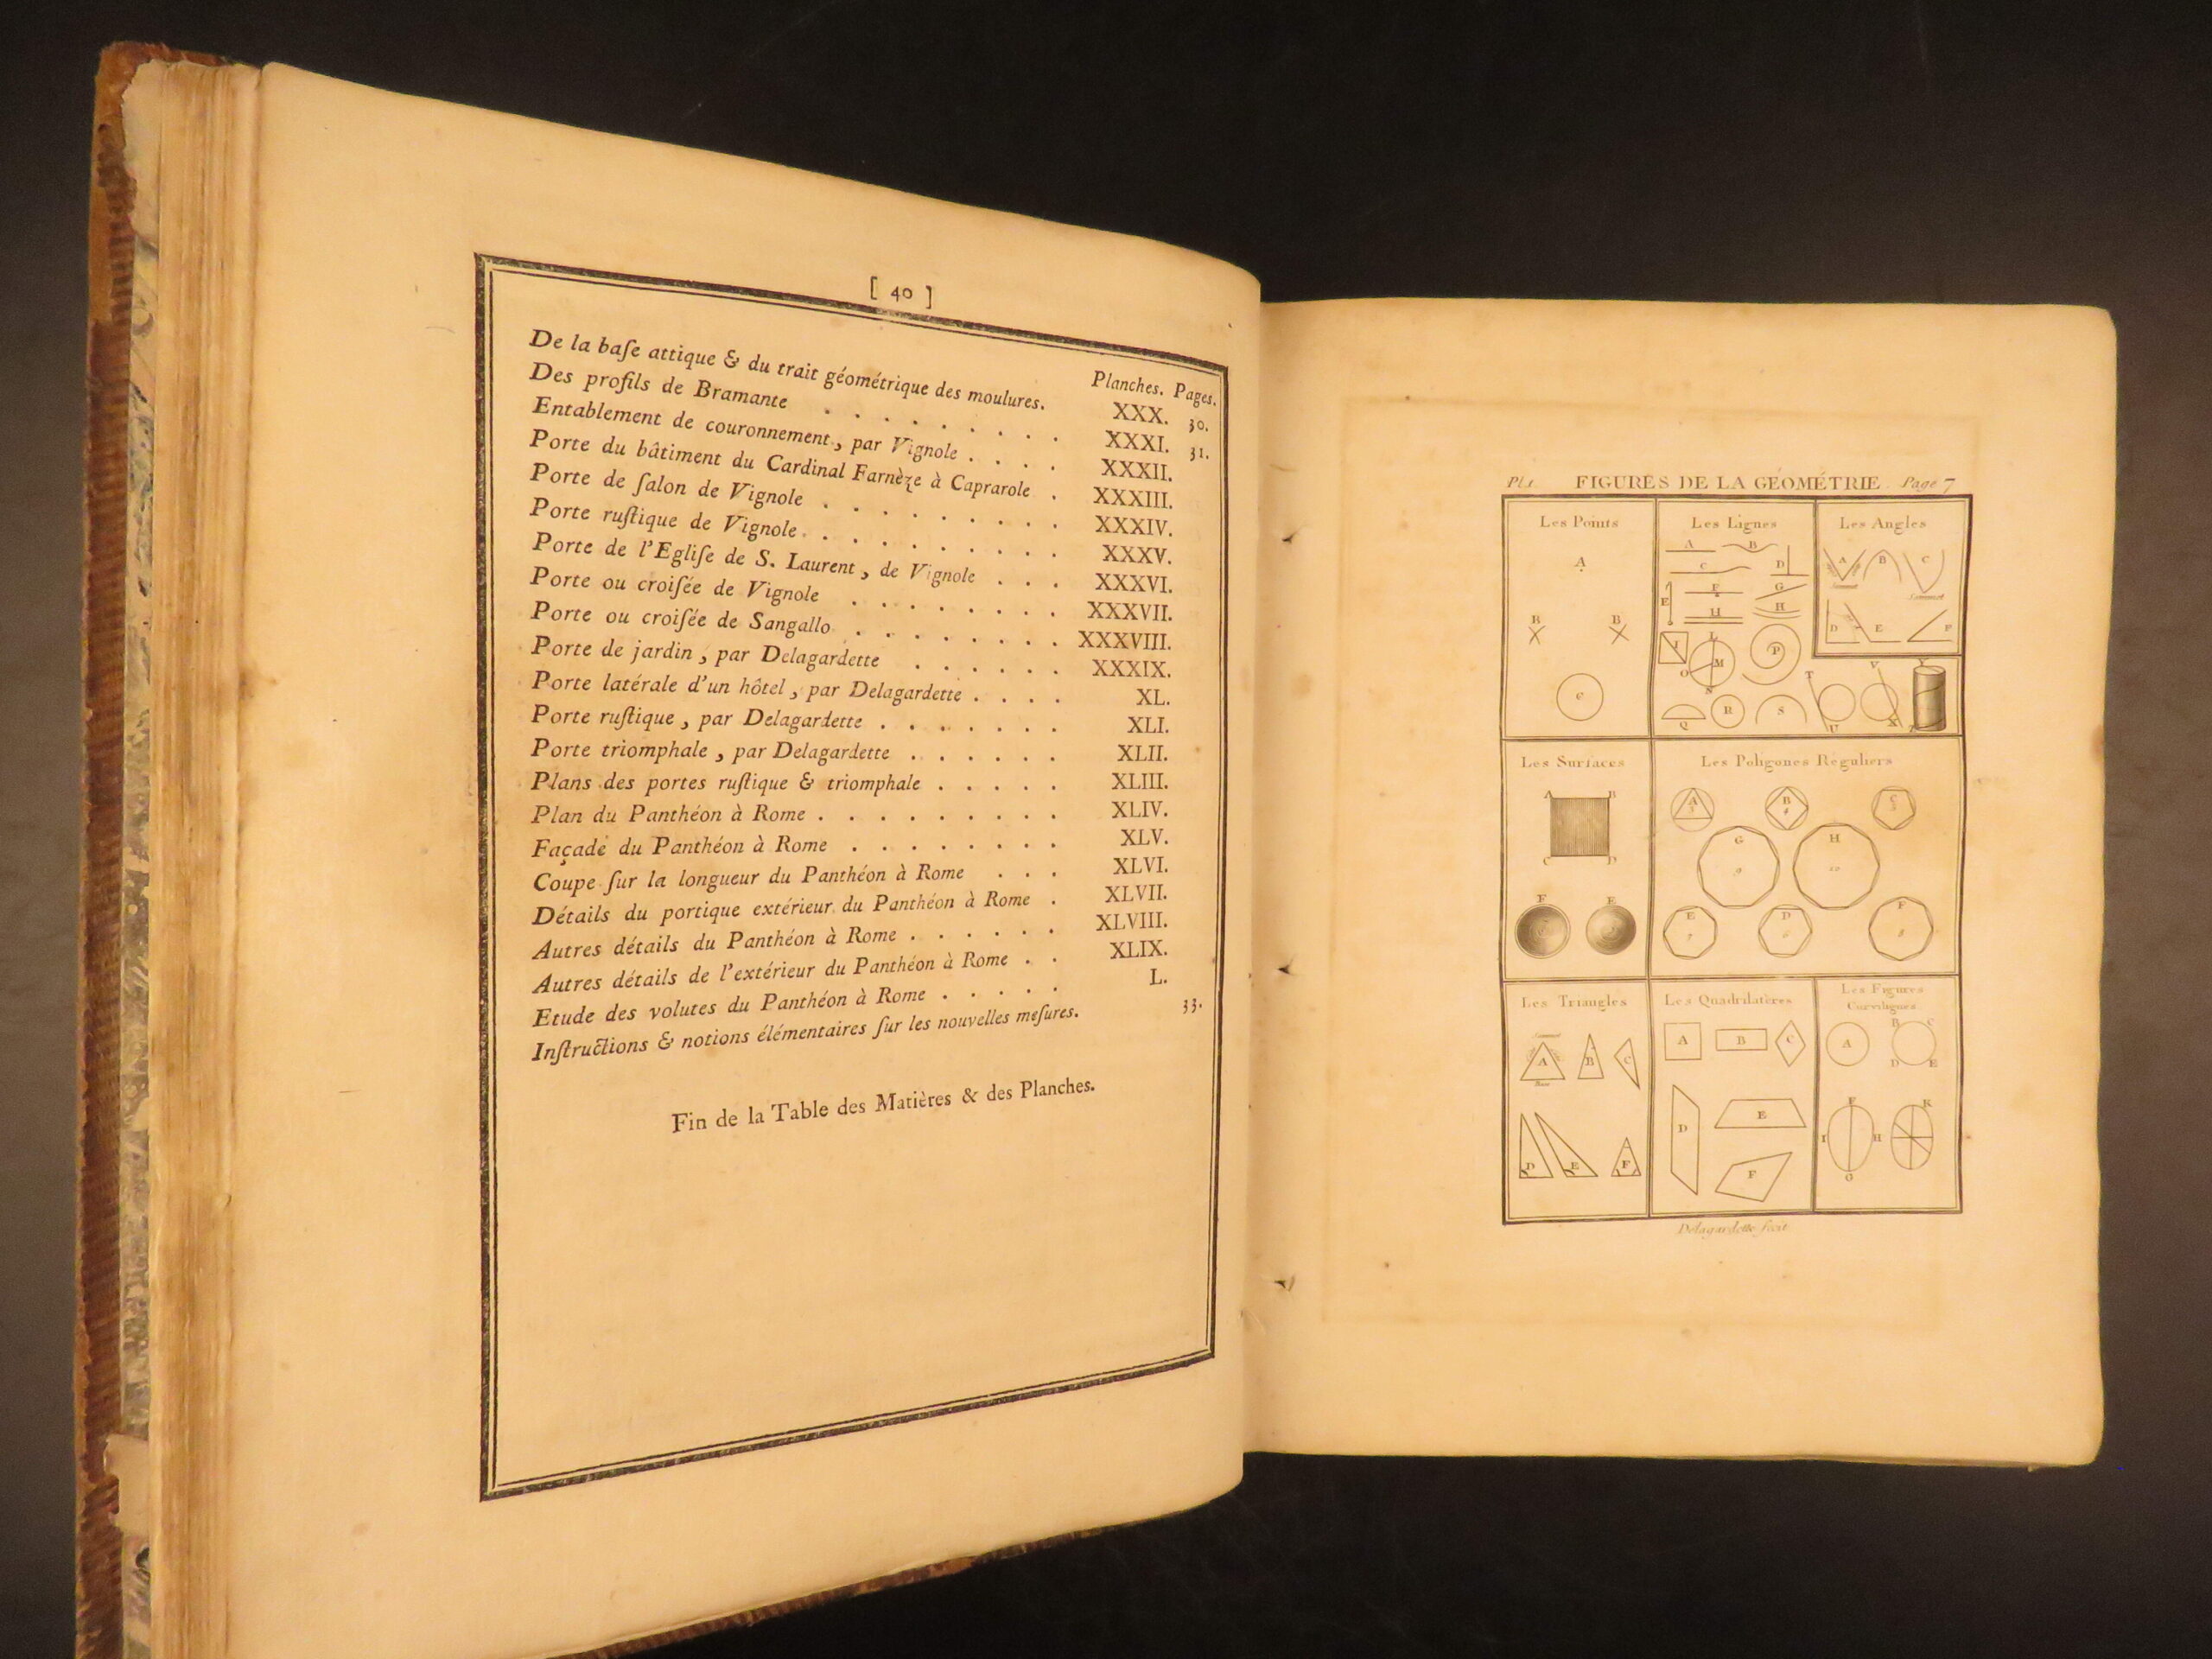 [ 40 ]
Planches. Pages.
De la baſe attique & du trait géométrique des moulures. XXX. 30.
Des profils de Bramante . . . . . . . . XXXI. 31.
Entablement de couronnement, par Vignole . . . . XXXII.
Porte du bâtiment du Cardinal Farnèze à Caprarole . XXXIII.
Porte de ſalon de Vignole . . . . . . . . . XXXIV.
Porte ruſtique de Vignole . . . . . . . . . XXXV.
Porte de l'Egliſe de S. Laurent, de Vignole . . . XXXVI.
Porte ou croiſée de Vignole . . . . . . . . XXXVII.
Porte ou croiſée de Sangallo . . . . . . . . XXXVIII.
Porte de jardin, par Delagardette . . . . . . XXXIX.
Porte latérale d'un hôtel, par Delagardette . . . . XL.
Porte ruſtique, par Delagardette . . . . . . . XLI.
Porte triomphale, par Delagardette . . . . . . XLII.
Plans des portes ruſtique & triomphale . . . . . XLIII.
Plan du Panthéon à Rome . . . . . . . . . XLIV.
Façade du Panthéon à Rome . . . . . . . . XLV.
Coupe ſur la longueur du Panthéon à Rome . . . XLVI.
Détails du portique extérieur du Panthéon à Rome . XLVII.
Autres détails du Panthéon à Rome . . . . . . XLVIII.
Autres détails de l'extérieur du Panthéon à Rome . . XLIX.
Etude des volutes du Panthéon à Rome . . . . . L.
Inſtructions & notions élémentaires ſur les nouvelles meſures. 33.
Fin de la Table des Matières & des Planches.
Pl.1 FIGURES DE LA GÉOMÉTRIE. Page 7
Les Points
A
B B
C
Les Lignes
A B
C D
E F G
H H
I L M P
O
Q R S T U V X
Les Angles
A B C
D E F
Les Surfaces
A B
C D
F E
Les Poligones Réguliers
A B C
3 4 5
G H
9 10
E D F
7 6 8
Les Triangles
A B C
D E F
Les Quadrilatères
A B C
D E
F
Les Figures
Curvilignes
A B C
D E
F K
I H
G
Delagardette fecit